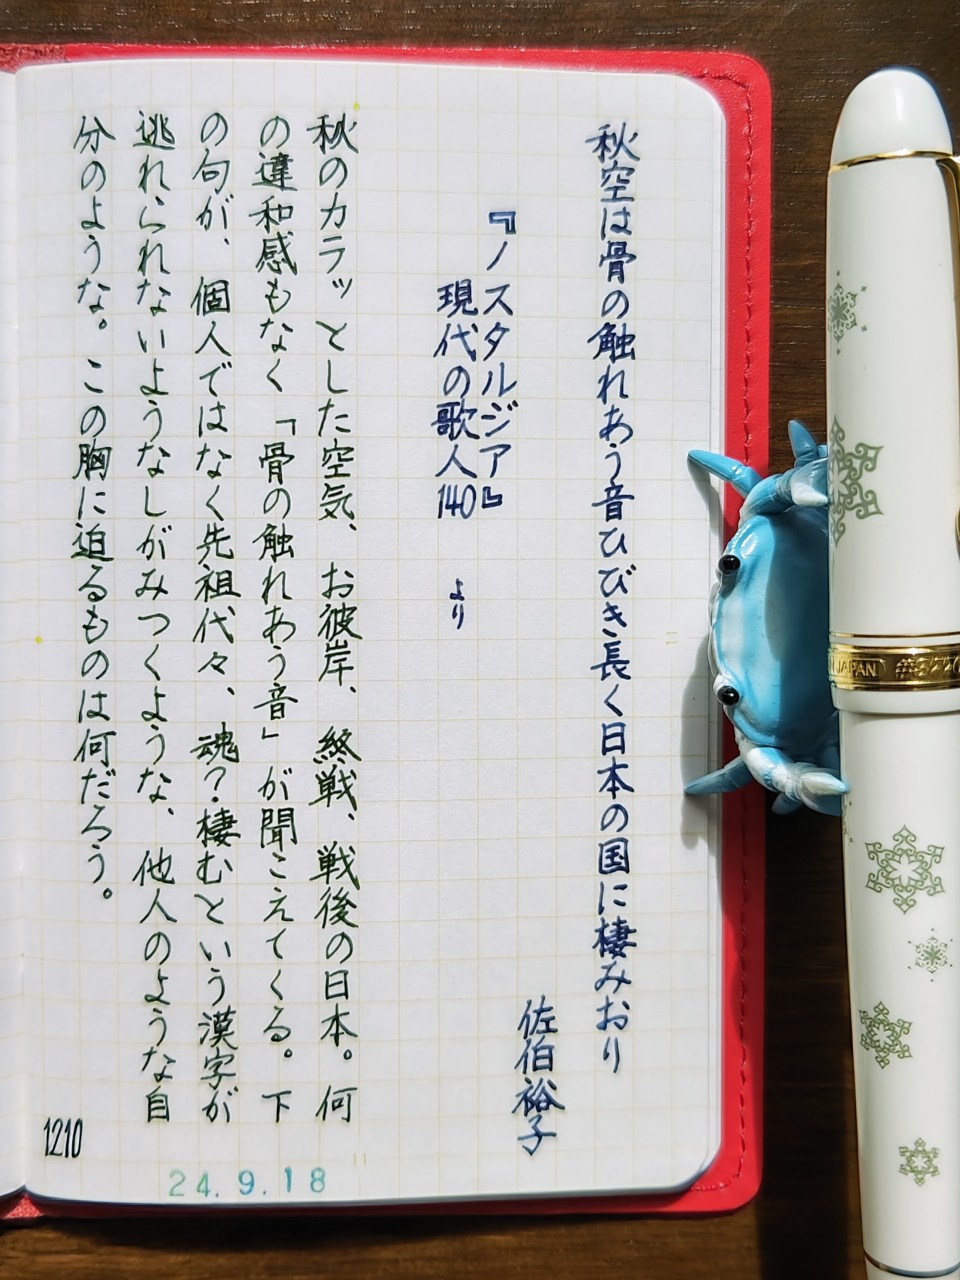 秋空は骨の触れあう音ひびき長く日本の国に棲みおり
佐伯裕子
『ノスタルジア』
現代の歌人140
より
秋のカラッとした空気、お彼岸、終戦、戦後の日本。何
の違和感もなく「骨の触れあう音」が聞こえてくる。下
の句が、個人ではなく先祖代々、魂?棲むという漢字が
逃れられないようなしがみつくような、他人のような自
分のような。この胸に迫るものは何だろう。
1210
24.9.18
JAPAN